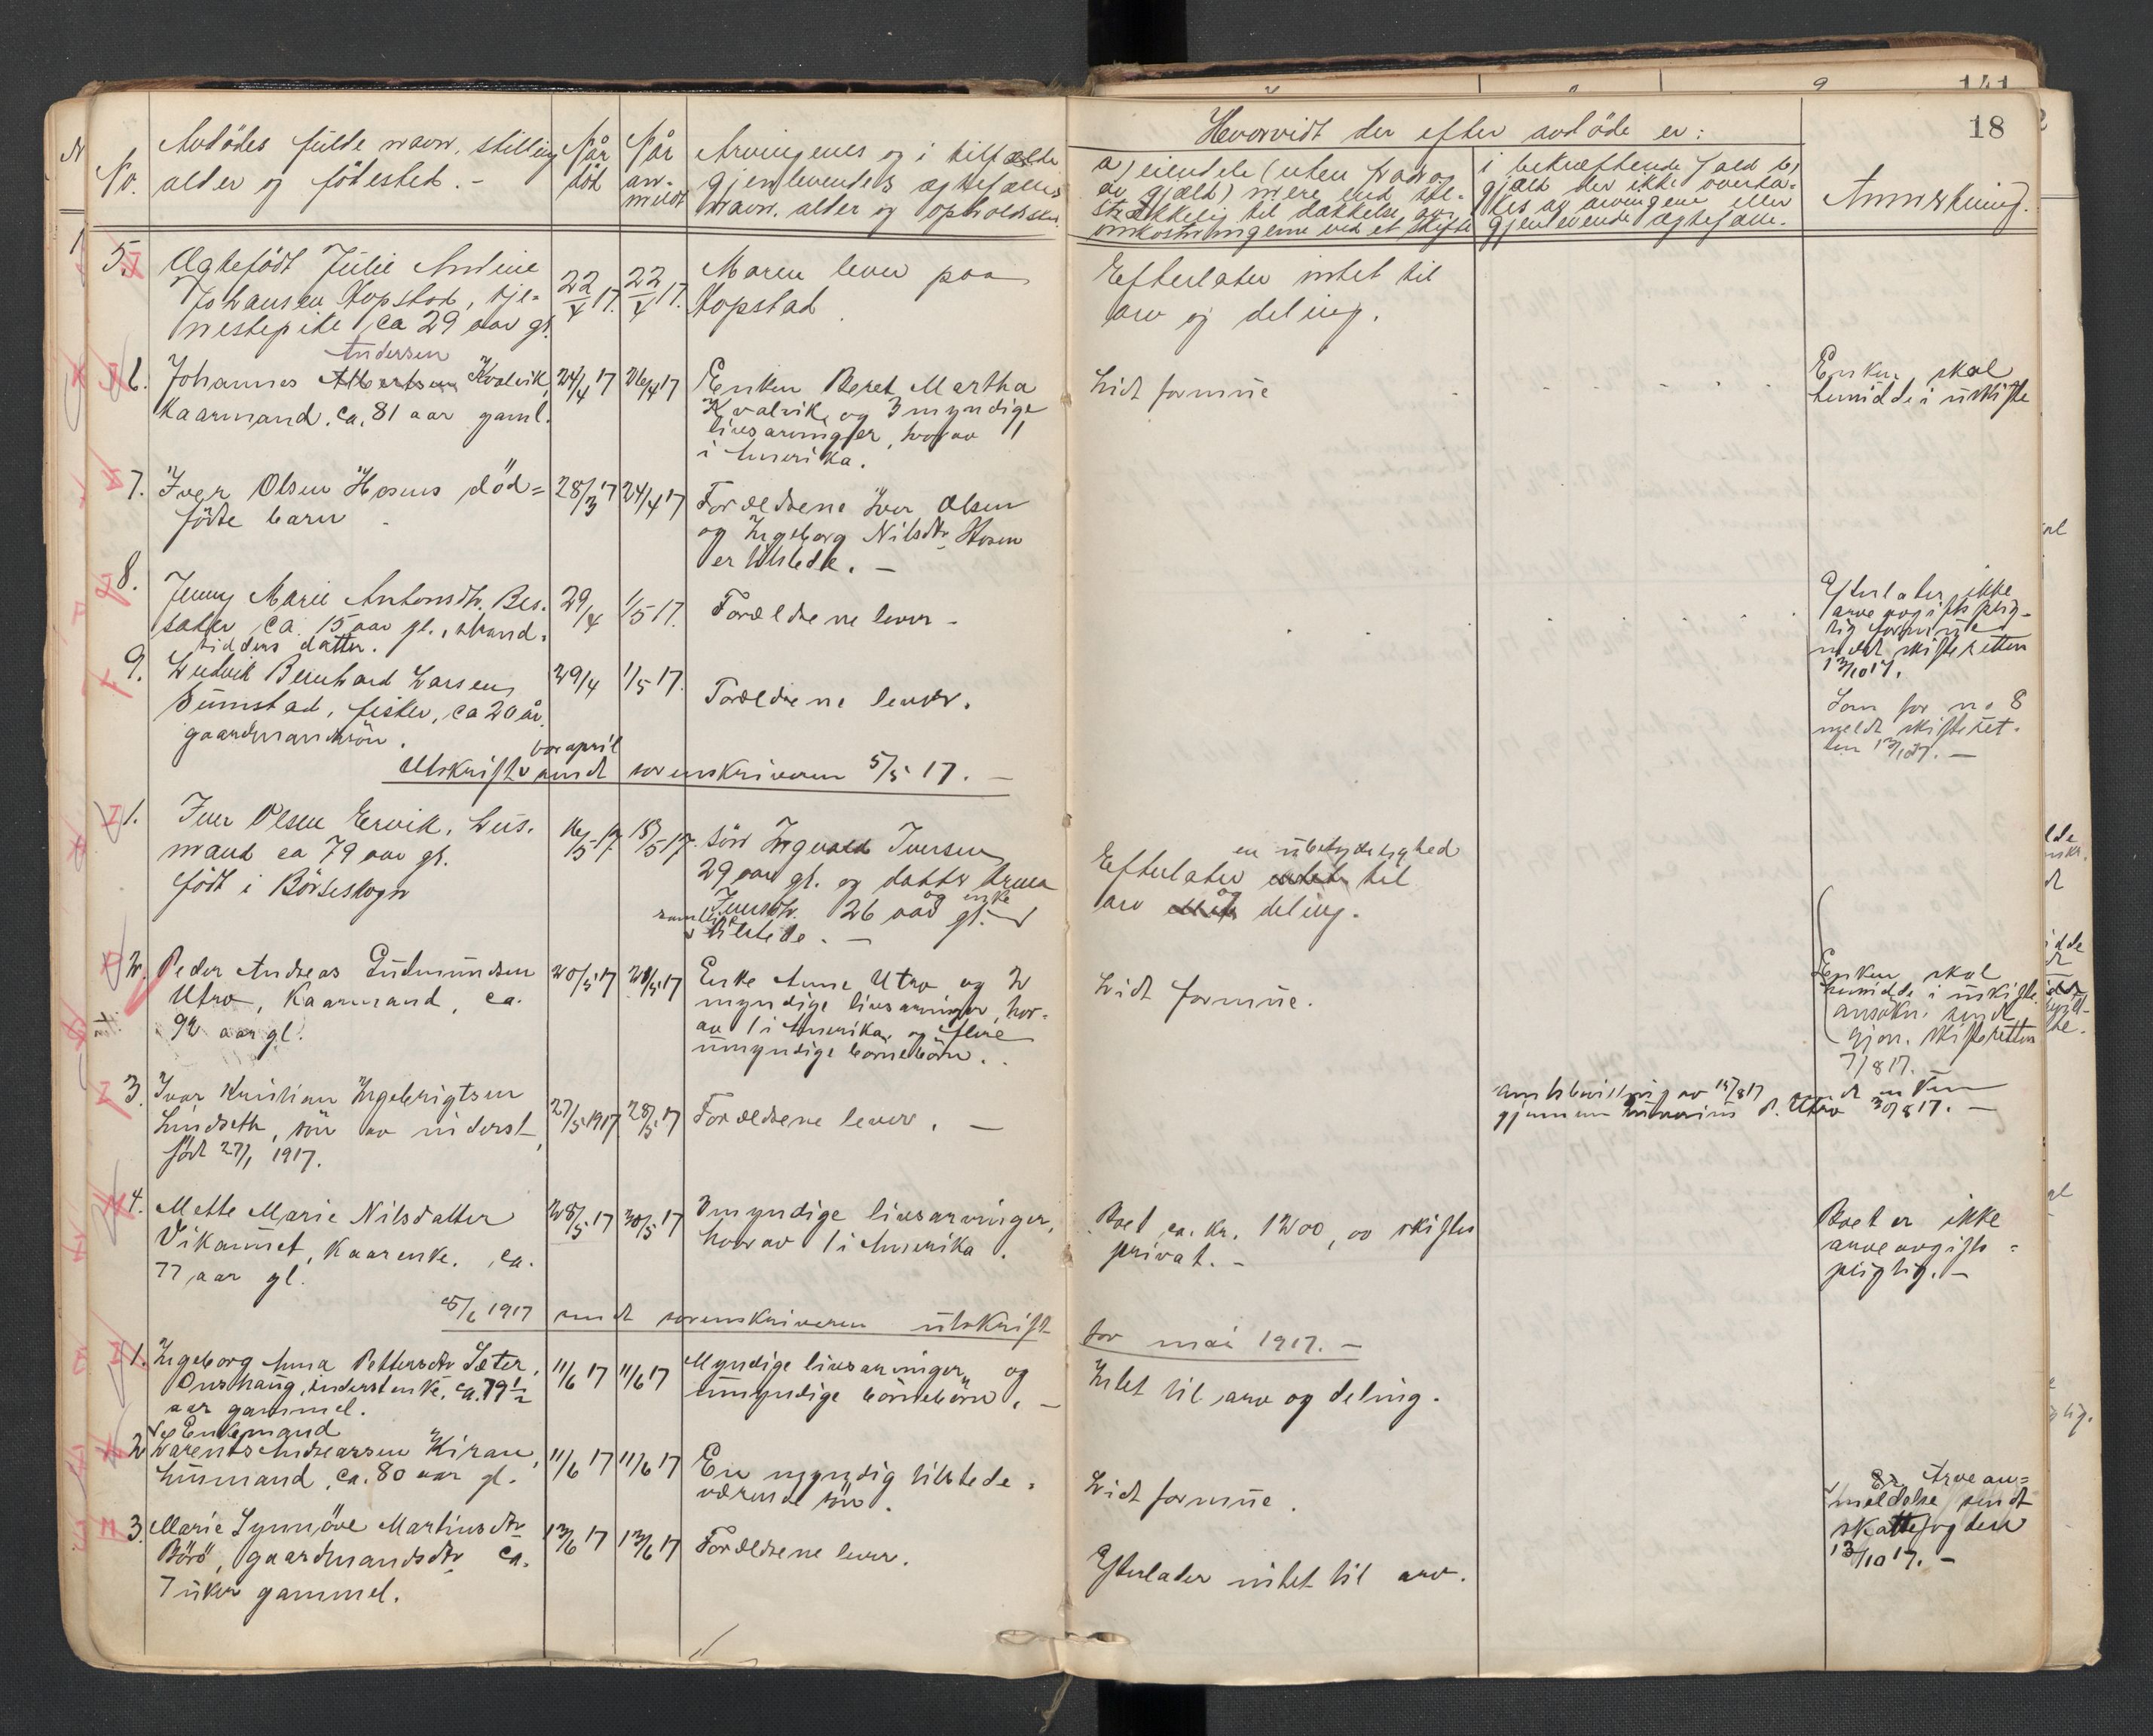 18
No.
Avdödes fulde navn, stilling
alder og födested. -
Når
död
Når
an-
meldt
Arvingenes og i tilfælde
gjenlevendes ægtefælles
navn, alder og opholdssted.
Hvorvidt der efter avdöde er:
a) eiendele (uten fradrag
av gjæld) mere end til-
strækkelig til dækkelse av
omkostningerne ved et skifte
i bekræftende fald b)
gjæld der ikke overta-
kes av arvingerne eller
gjenlevende ægtefælle.
Anmerkning.
5. Ugtefödt Julie Andine
Johansen Kopstad, tje-
nestepike ca 29 aar gl.
22/4 17.
22/4 17.
Moren lever paa
Kopstad.
Efterlater intet til
arv og deling.
6. Johannes Albertsen Kvalvik,
Andersen
Kaarmand. ca. 81 aar gaml.
24/4 17
26/4 17
Enken Beret Martha
Kvalvik og 3 myndige
livsarvinger, hvorav 1
i Amerika.
Lidt formue
Enken skal
hensidde i uskifte
7. Iver Olsen Hosens död=
födte barn
28/3 17
24/4 17
Forældrene Iver Olsen
og Ingeborg Nilsdtr Hosen
er tilstede. -
8. Jenny Marie Antonsdtr. Bes-
saker ca. 15 aar gl., strand-
sidders datter.
29/4
1/5 17.
Forældrene lever -
Efterlater ikke
arveavgiftsplig-
tig formue
meldt skifteretten
13/10 17.
9. Ludvik Bernhard Larsen
Sumstad, fisker, ca 20 år.
gaardmandssön.
29/4
1/5 17.
Forældrene lever.
Som for no 8
meldt skifteret-
ten 13/10 17. -
for april
Utskrift sendt sorenskriveren 5/5 17. -
1. Iver Olsen Ervik, hus-
mand ca 79 aar gl.
födt i Börseskogn
16/5 17.
18/5 17.
sön Ingvald Iversen
29 aar gl. og datter Anna
Iversdtr. 26 aar gl.
og enke
samtlige
tilstede. -
en ubetydelighed
Efterlater intet til
og
arv eller deling.
2. Peder Andreas Gudmundsen
Utro, Kaarmand, ca.
92 aar gl.
20/5 17
21/5 17
Enke Anne Utro og 2
myndige livsarvinger, hor-
av 1 i Amerika og flere
umyndige börnebörn.
Lidt formue.
Enken skal
hensidde i uskifte
ansökn. sendt
gjen. skifteretten
7/8 17.
Amtsbevilling av 15/8 17 sendt enken
gjennem P. Utro 30/8 17. -
3. Ivar Kristian Ingebrigtsen
Lindseth, sön av inderst,
födt 27/1 1917.
27/5 1917
28/5 17
Forældrene lever. -
4. Mette Marie Nilsdatter
Vikamnet, Kaarenke. ca.
77 aar gl.
28/5 17
30/5 17
3 myndige livsarvinger,
hvorav 1 i Amerika.
Boet, ca. kr. 1200,00 skiftes
privat. -
Boet er ikke
arveavgifts=
pligtig. -
5/6 1917 sendt sorenskriveren utskrift
for mai 1917. -
1. Ingeborg Anna Pettersdtr Sæter,
Onshaug, inderstenke, ca. 79 1/2
aar gammel.
11/6 17
11/6 17
Myndige livsarvinger og
umyndige börnebörn. -
Intet til arv og deling.
Enkemand
2. Larents Andreassen Kiran,
husmand, ca. 80 aar gl.
11/6 17
11/6 17
En myndig tilstede-
værende sön.
Lidt formue.
Arvean=
meldelse sendt
skattefogden
13/10 17. -
3. Marie Synnöve Martinsdtr
Börö, gaardmandsdtr ca.
7 uker gammel.
13/6 17
13/6 17
Forældrene lever.
Efterlader intet til arv.